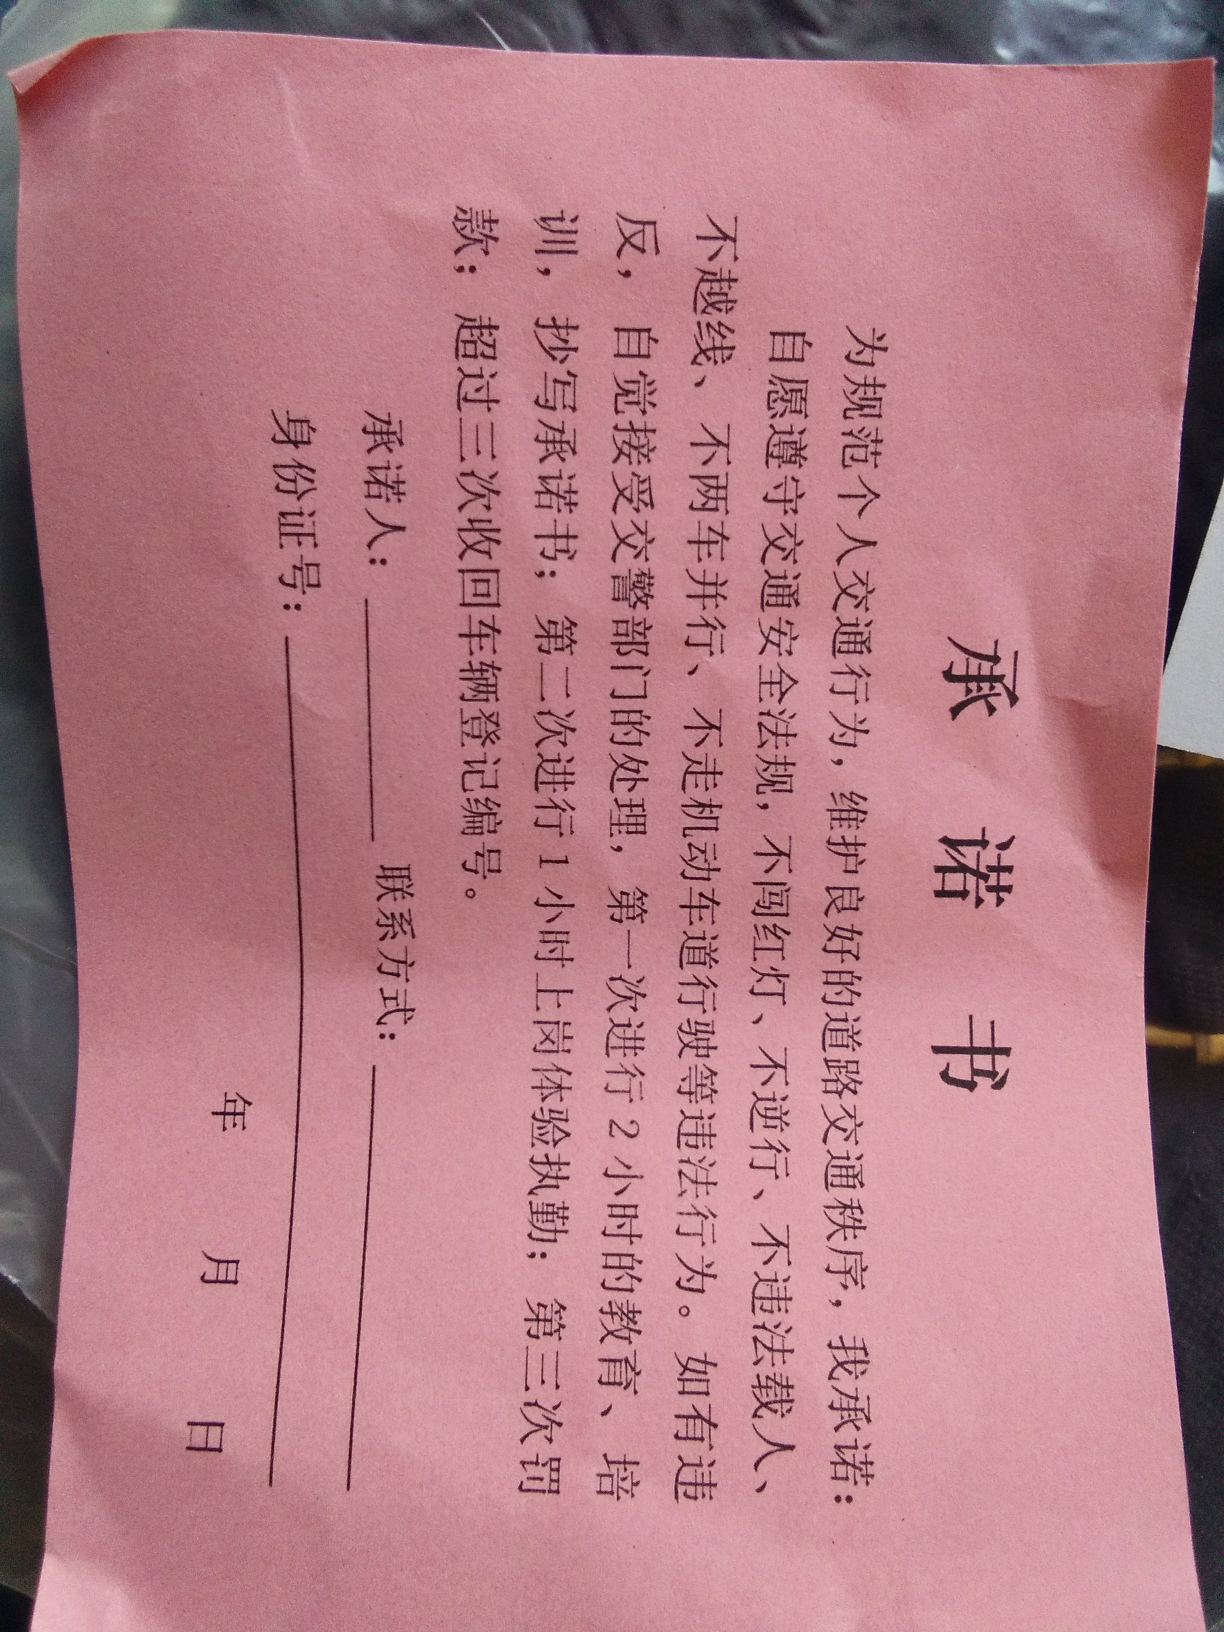 承诺书
为规范个人交通行为，维护良好的道路交通秩序，我承诺：
自愿遵守交通安全法规，不闯红灯、不逆行、不违法载人、
不越线、不两车并行、不走机动车道行驶等违法行为。如有违
反，自觉接受交警部门的处理，第一次进行2小时的教育、培
训，抄写承诺书；第二次进行1小时上岗体验执勤；第三次罚
款；超过三次收回车辆登记编号。
承诺人： 联系方式：
身份证号：
年 月 日